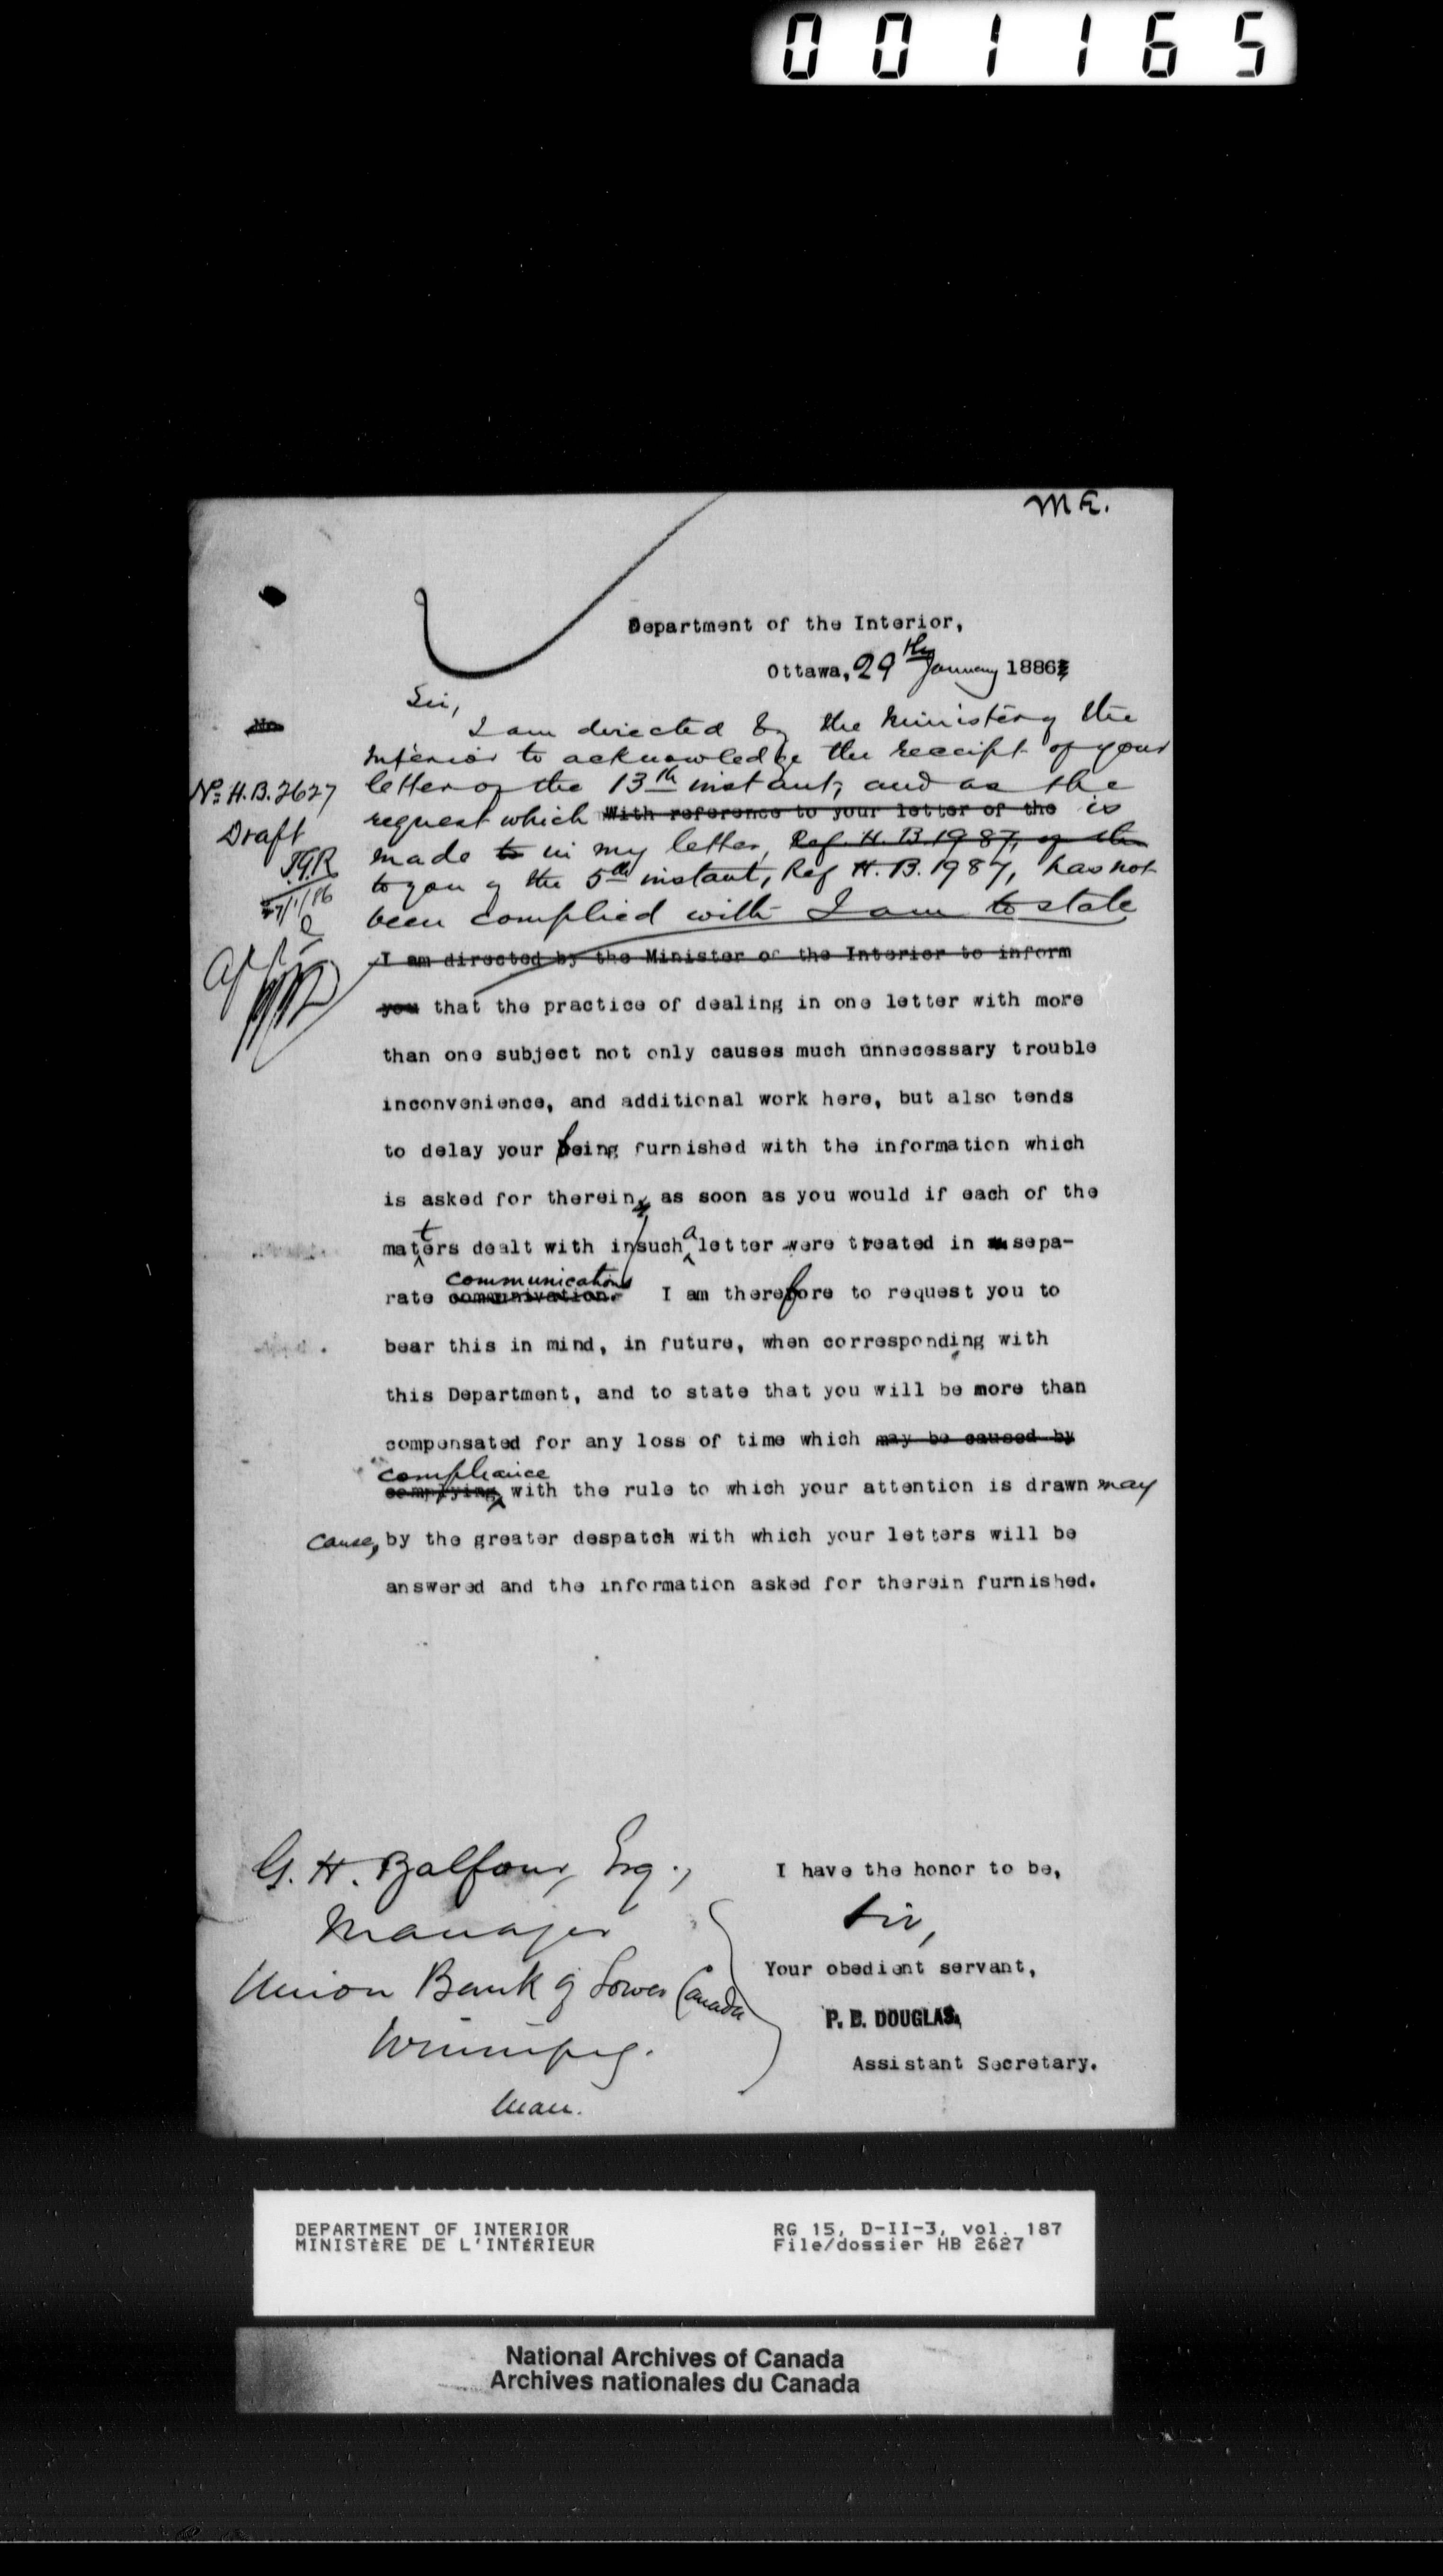 001165
M E.
Department of the Interior,
Ottawa, 29th January 1886
Sir,
I am directed by the Minister of the
Interior to acknowledge the receipt of your
letter of the 13th instant, and as the
request which With reference to your letter of the is
No. H.B. 2627
Draft
J.G.R
27/1/86
made to in my letter, Ref. H. B. 1987, of the
to you of the 5th instant, Ref H. B. 1987, has not
been complied with I am to state
I am directed by the Minister of the Interior to inform
you that the practice of dealing in one letter with more
than one subject not only causes much unnecessary trouble
inconvenience, and additional work here, but also tends
to delay your being furnished with the information which
is asked for therein, as soon as you would if each of the
matters dealt with in such a letter were treated in a sepa-
communication
rate communivation. I am therefore to request you to
bear this in mind, in future, when corresponding with
this Department, and to state that you will be more than
compensated for any loss of time which may be caused by
compliance
complying with the rule to which your attention is drawn may
cause, by the greater despatch with which your letters will be
answered and the information asked for therein furnished.
I have the honor to be,
Sir,
Your obedient servant,
P. B. DOUGLAS,
Assistant Secretary.
G. H. Balfour, Esq.,
Manager
Union Bank of Lower Canada
Winnipeg.
Man.
DEPARTMENT OF INTERIOR
MINISTÈRE DE L'INTÉRIEUR
RG 15, D-II-3, vol. 187
File/dossier HB 2627
National Archives of Canada
Archives nationales du Canada